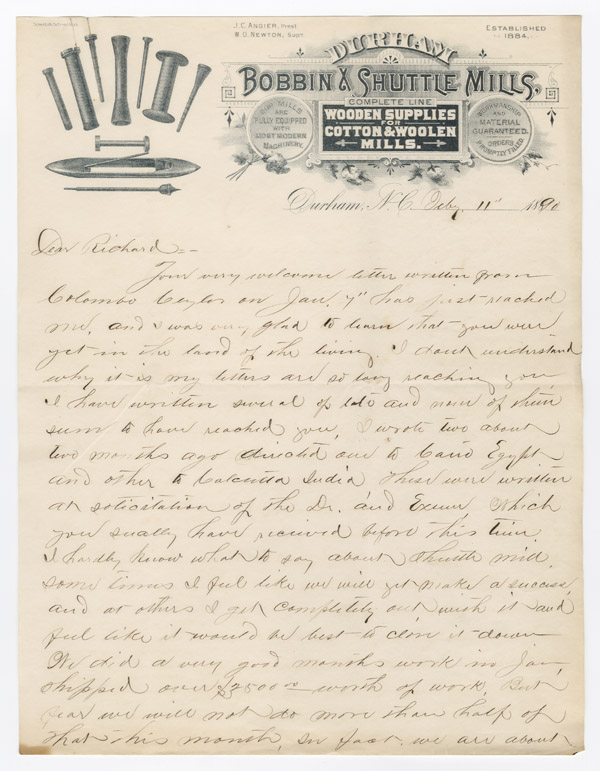 J.C. ANGIER, Prest.
W.O. NEWTON, Supt.
ESTABLISHED
1884.
DURHAM
BOBBIN & SHUTTLE MILLS,
COMPLETE LINE
WOODEN SUPPLIES
FOR
COTTON & WOOLEN
MILLS.
OUR MILLS
ARE
FULLY EQUIPPED
WITH
MOST MODERN
MACHINERY.
WORKMANSHIP
AND
MATERIAL
GUARANTEED.
ORDERS
PROMPTLY FILLED.
Durham, N.C. Feby. 11" 1890
Dear Richard:-
Your very welcome letter written from
Colombo Ceylon on Jan. 7" has just reached
me, and I was very glad to learn that you were
yet in the land of the living. I dont understand
why it is my letters are so long reaching you
I have written several of late and none of them
seem to have reached you, I wrote two about
two months ago directed one to Cairo Egypt
and other to Calcutta India these were written
at solicitation of the Dr. and Which
you surely have received before this time.
I hardly know what to say about Shuttle mill.
some times I feel like we will yet make a success,
and at others I get completely out with it and
feel like it would be best to close it down
We did a very good months work in Jan,
shipped over $2500.00 worth of work, But
fear we will not do more than half of
that this month, in fact we are about